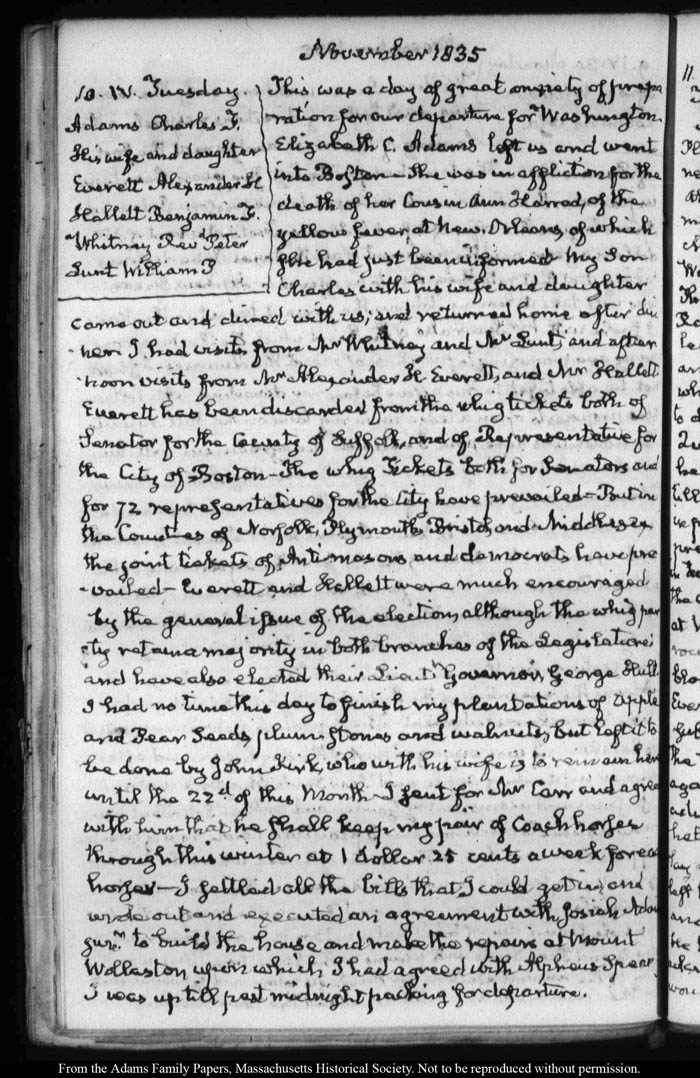 November 1835
10. IV. Tuesday.
Adams Charles F.
His wife and daughter
Everett Alexander H.
Hallett Benjamin F.
Whitney Revd Peter
Lunt William P
This was a day of great anxiety of prepa
ration for our departure for Washington.
Elizabeth C. Adams left us and went
into Boston — She was in affliction for the
death of her Cousin Ann Harrod, of the
yellow fever at New-Orleans, of which
She had just been informed My Son
Charles with his wife and daughter
came out and dined with us; and returned home after din
-ner. I had visits from Mr Whitney and Mr Lunt, and after
-noon visits from Mr Alexander H. Everett, and Mr Hallett
Everett has been discarded from the whig tickets both of
Senator for the County of Suffolk, and of Representative for
the City of Boston — The whig Tickets both for Senators and
for 72 representatives for the City have prevailed — But in
the Counties of Norfolk, Plymouth Bristol and Middlesex
the joint tickets of Antimasons and democrats have pre
-vailed — Everett and Hallett were much encouraged
by the general issue of the election, although the whig par
-ty retain a majority in both branches of the Legislature;
and have also elected their Lieutt Governor, George Hull
I had no time this day to finish my plantations of apple
and Pear Seeds, plum stones and walnuts, but left it to
be done by John Kirk, who with his wife is to remain here
until the 22d of this Month — I sent for Mr Carr and agree
with him that he shall keep my pair of Coach horses
through this winter at 1 dollar 25 cents a week for ea
horses — I settled all the bills that I could get in, and
wrote out and executed an agreement with Josiah Adam
junr to build the house and make the repairs at Mount
Wollaston upon which I had agreed with Alpheus Spear
I was up till past midnight packing for departure.
11.
From the Adams Family Papers, Massachusetts Historical Society. Not to be reproduced without permission.